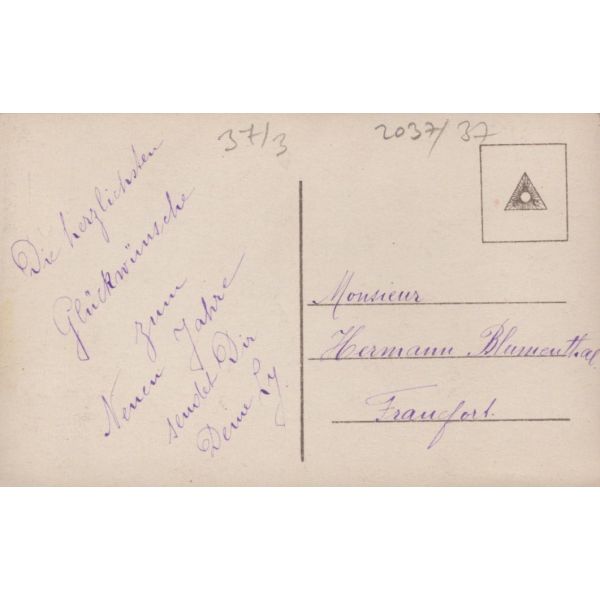 37/3
2037/37
Die herzlichsten
Glückwünsche
zum
Neuen Jahre
sendet Dir
Deine Ly.
Monsieur
Hermann Blumenthal
Francfort.